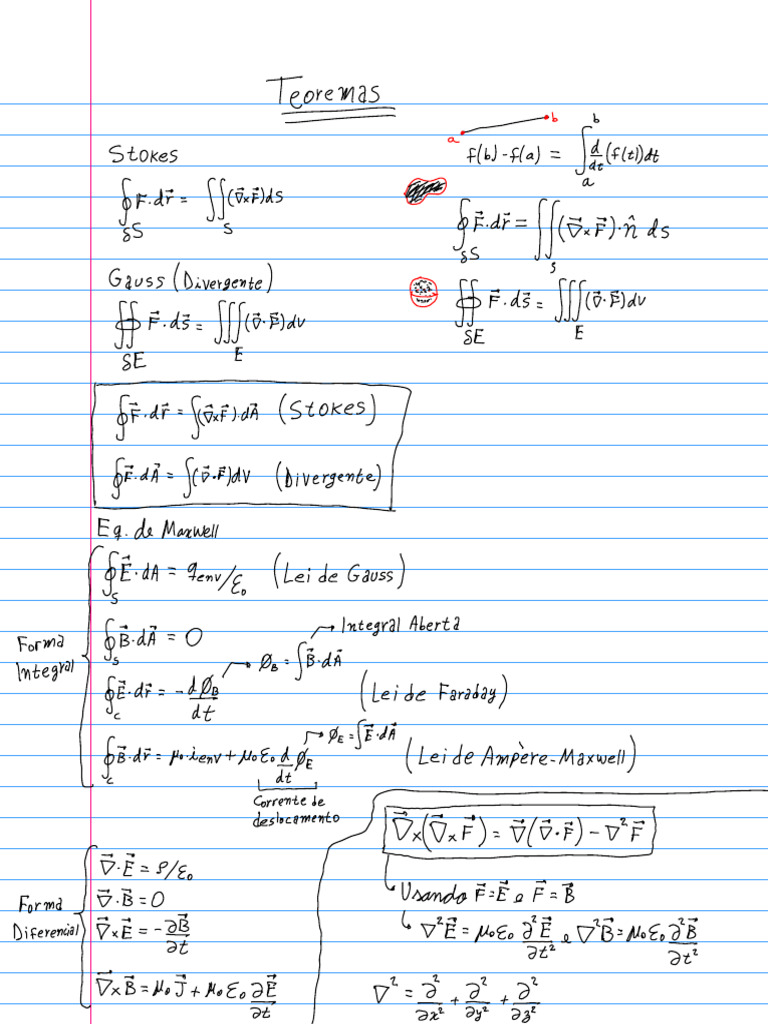 Teoremas
a b
f(b)-f(a) = ∫_a^b d/dt (f(t))dt
Stokes
∮_δS F·dr⃗ = ∬_S (∇⃗×F⃗)dS
∮_δS F⃗·dr⃗ = ∬_S (∇⃗×F⃗)·n̂ ds
Gauss (Divergente)
∯_δE F⃗·ds⃗ = ∭_E (∇⃗·F⃗)dv
∯_δE F⃗·ds⃗ = ∭_E (∇⃗·F⃗)dv
∮F⃗·dr⃗ = ∫(∇⃗×F⃗)·dA⃗ (Stokes)
∮F⃗·dA⃗ = ∫(∇⃗·F⃗)dV (Divergente)
Eq. de Maxwell
Forma Integral
∮_S E⃗·dA = q_env/ε₀ (Lei de Gauss)
∮_S B⃗·dA⃗ = 0
∮_C E⃗·dr⃗ = -dØ_B/dt → Ø_B = ∫B⃗·dA⃗ → Integral Aberta (Lei de Faraday)
∮_C B⃗·dr⃗ = μ₀·i_env + μ₀ε₀ d/dt Ø_E → Ø_E = ∫E⃗·dA⃗ (Lei de Ampère-Maxwell)
Corrente de
deslocamento
Forma
Diferencial
∇⃗·E⃗ = ρ/ε₀
∇⃗·B⃗ = 0
∇⃗×E⃗ = -∂B⃗/∂t
∇⃗×B⃗ = μ₀J⃗ + μ₀ε₀ ∂E⃗/∂t
∇⃗×(∇⃗×F⃗) = ∇⃗(∇⃗·F⃗) - ∇²F⃗
Usando F⃗=E⃗ e F⃗=B⃗
∇²E⃗ = μ₀ε₀ ∂²E⃗/∂t² e ∇²B⃗ = μ₀ε₀ ∂²B⃗/∂t²
∇² = ∂²/∂x² + ∂²/∂y² + ∂²/∂z²